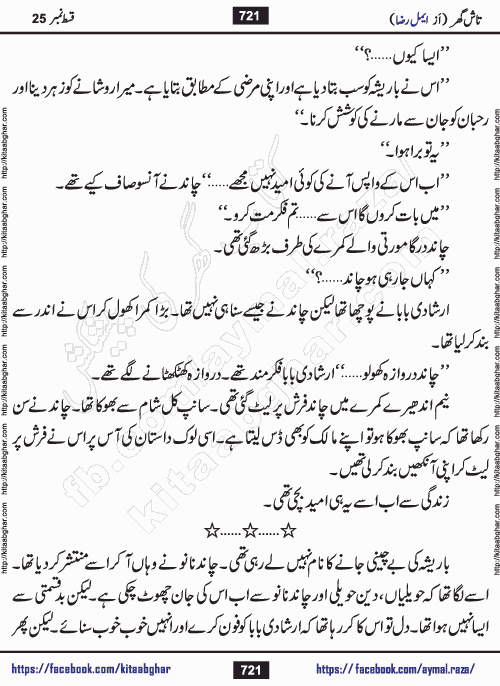 تاش گھر (از ایمل رضا) 721 قسط نمبر 25
’’ایسا کیوں......؟‘‘
’’اس نے باریشہ کو سب بتا دیا ہے اور اپنی مرضی کے مطابق بتایا ہے۔ میرا روشانے کو زہر دینا اور
رحبان کو جان سے مارنے کی کوشش کرنا۔‘‘
’’یہ تو برا ہوا۔‘‘
’’اب اس کے واپس آنے کی کوئی امید نہیں مجھے......‘‘ چاند نے آنسو صاف کیے تھے۔
’’میں بات کروں گا اس سے...... تم فکر مت کرو۔‘‘
چاند درگا مورتی والے کمرے کی طرف بڑھ گئی تھی۔
’’کہاں جا رہی ہو چاند......؟‘‘
ارشادی بابا نے پوچھا تھا لیکن چاند نے جیسے سنا ہی نہیں تھا۔ بڑا کمرا کھول کر اس نے اندر سے
بند کر لیا تھا۔
’’چاند دروازہ کھولو......‘‘ ارشادی بابا فکر مند تھے۔ دروازہ کھٹکھٹانے لگے تھے۔
نیم اندھیرے کمرے میں چاند فرش پر لیٹ گئی تھی۔ سانپ کل شام سے بھوکا تھا۔ چاند نے سن
رکھا تھا کہ سانپ بھوکا ہو تو اپنے مالک کو بھی ڈس لیتا ہے۔ اسی لوک داستان کی آس پر اس نے فرش پر
لیٹ کر اپنی آنکھیں بند کر لی تھیں۔
زندگی سے اب اسے یہ ہی امید بچی تھی۔
☆......☆......☆
باریشہ کی بے چینی جانے کا نام نہیں لے رہی تھی۔ چاند نانو نے وہاں آ کر اسے منتشر کر دیا تھا۔
اسے لگا تھا کہ حویلیاں، دین حویلی اور چاند نانو سے اب اس کی جان چھوٹ چکی ہے۔ لیکن بدقسمتی سے
ایسا نہیں ہوا تھا۔ دل تو اس کا کر رہا تھا کہ ارشادی بابا کو فون کرے اور انہیں خوب خوب سنائے۔ لیکن پھر
https://facebook.com/kitaabghar 721 https://facebook.com/aymal.raza/
http://kitaabghar.com http://kitaabghar.com http://kitaabghar.com http://kitaabghar.com http://kitaabghar.com
http://kitaabghar.com http://kitaabghar.com http://kitaabghar.com http://kitaabghar.com http://kitaabghar.com
fb.com/aymal.raza/
kitaabghar.com